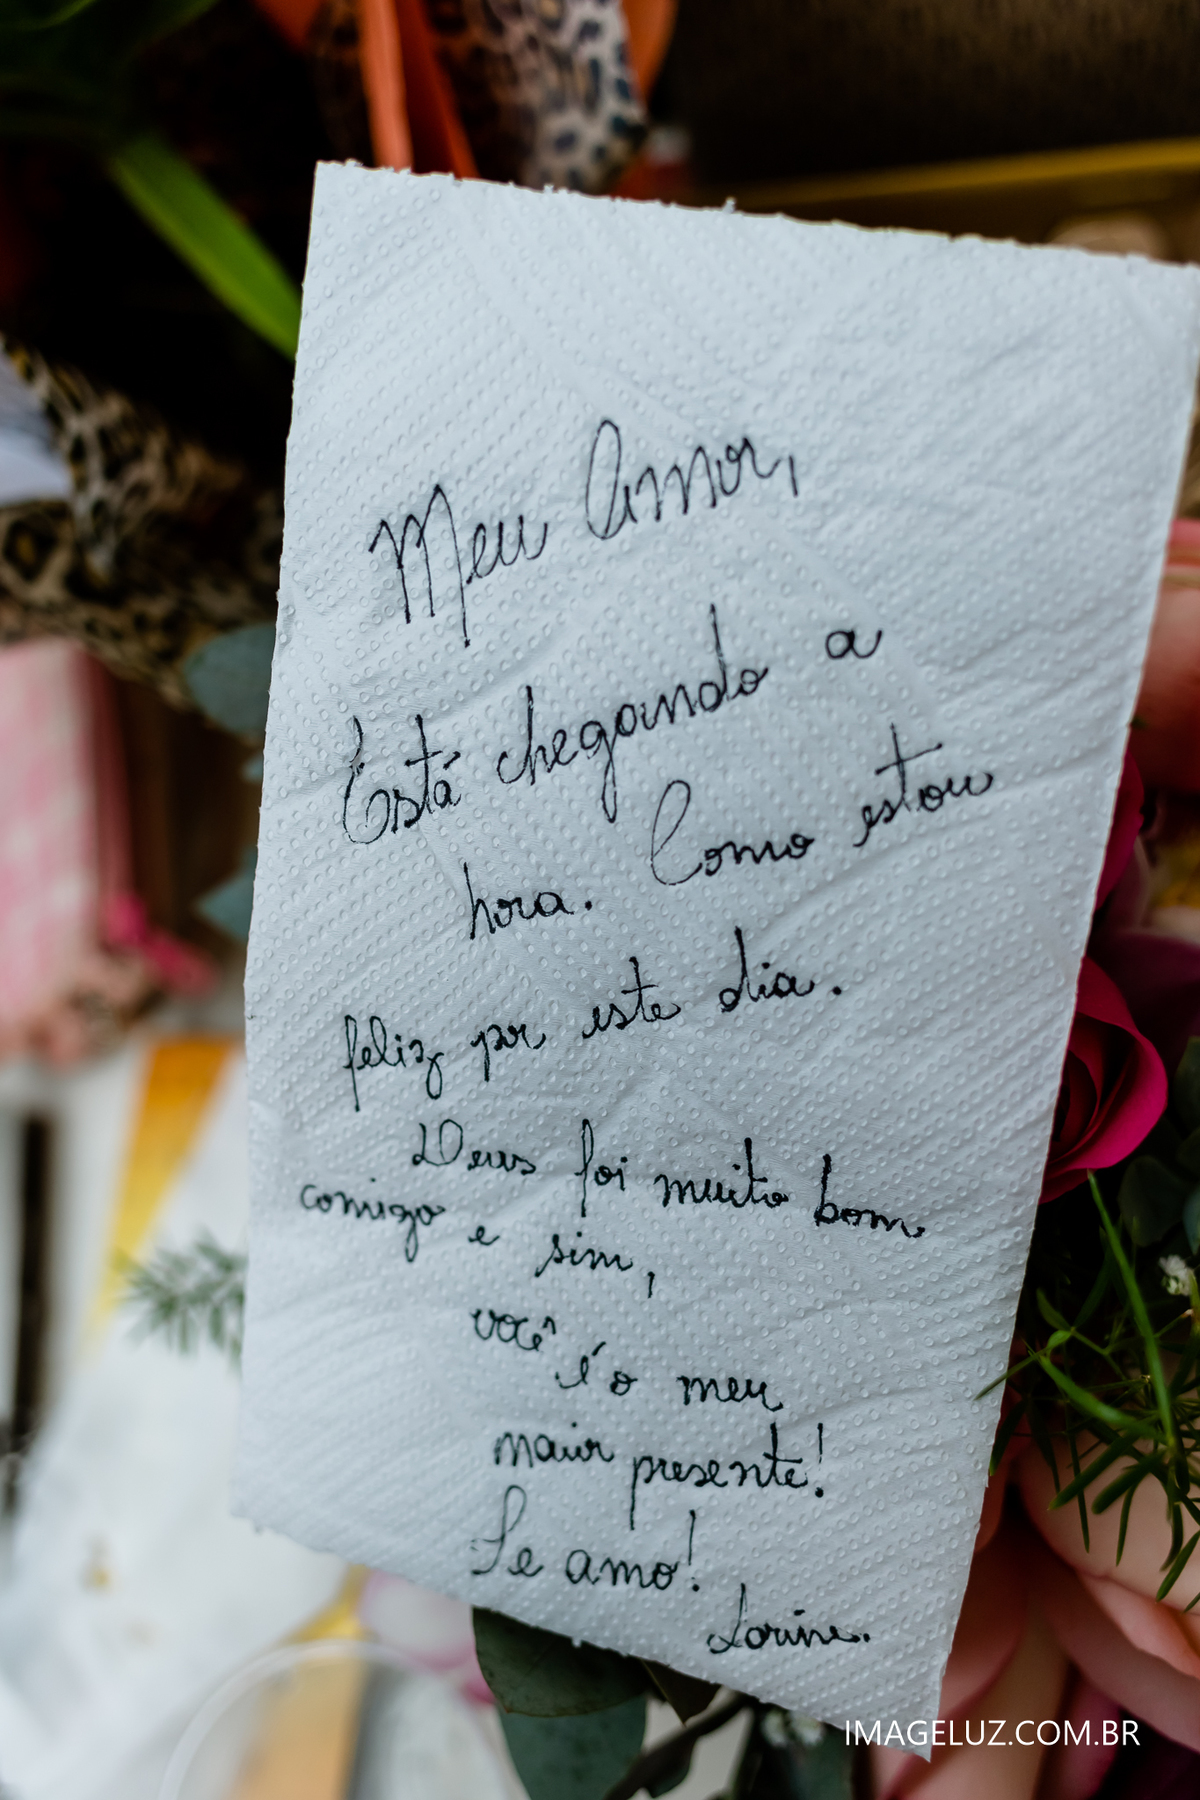 Meu Amor,
Está chegando a
hora. Como estou
feliz por este dia.
Deus foi muito bom
comigo e sim,
você é o meu
maior presente!
Te amo!
Lorine.
IMAGELUZ.COM.BR